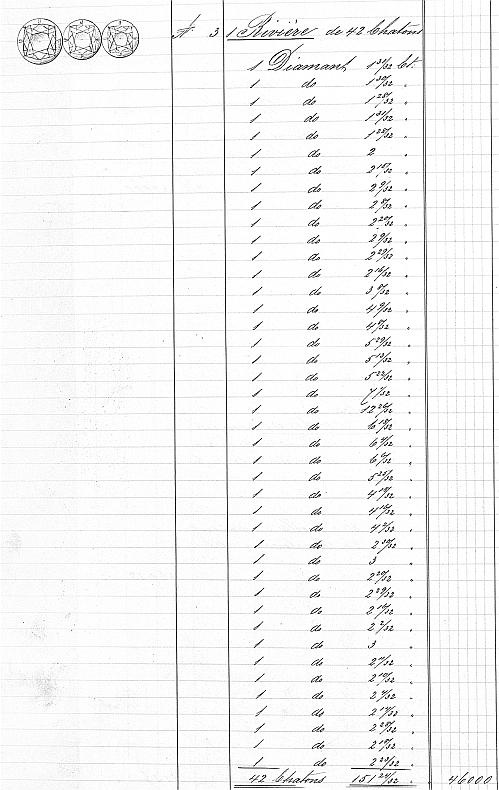 № 3 1 Rivière de 42 Chatons
1 Diamant 1 31/32 Ct.
1 do 1 30/32 "
1 do 1 28/32 "
1 do 1 31/32 "
1 do 1 28/32 "
1 do 2 "
1 do 2 18/32 "
1 do 2 9/32 "
1 do 2 8/32 "
1 do 2 20/32 "
1 do 2 9/32 "
1 do 2 29/32 "
1 do 2 16/32 "
1 do 3 8/32 "
1 do 4 9/32 "
1 do 4 8/32 "
1 do 5 29/32 "
1 do 5 12/32 "
1 do 5 22/32 "
1 do 7 7/32 "
1 do 12 26/32 "
1 do 6 18/32 "
1 do 6 4/32 "
1 do 6 6/32 "
1 do 5 25/32 "
1 do 4 19/32 "
1 do 4 16/32 "
1 do 4 2/32 "
1 do 2 30/32 "
1 do 3 "
1 do 2 20/32 "
1 do 2 29/32 "
1 do 2 19/32 "
1 do 2 2/32 "
1 do 3 "
1 do 2 11/32 "
1 do 2 10/32 "
1 do 2 4/32 "
1 do 2 14/32 "
1 do 2 28/32 "
1 do 2 18/32 "
1 do 2 23/32 "
42 Chatons 151 24/32 " 46000